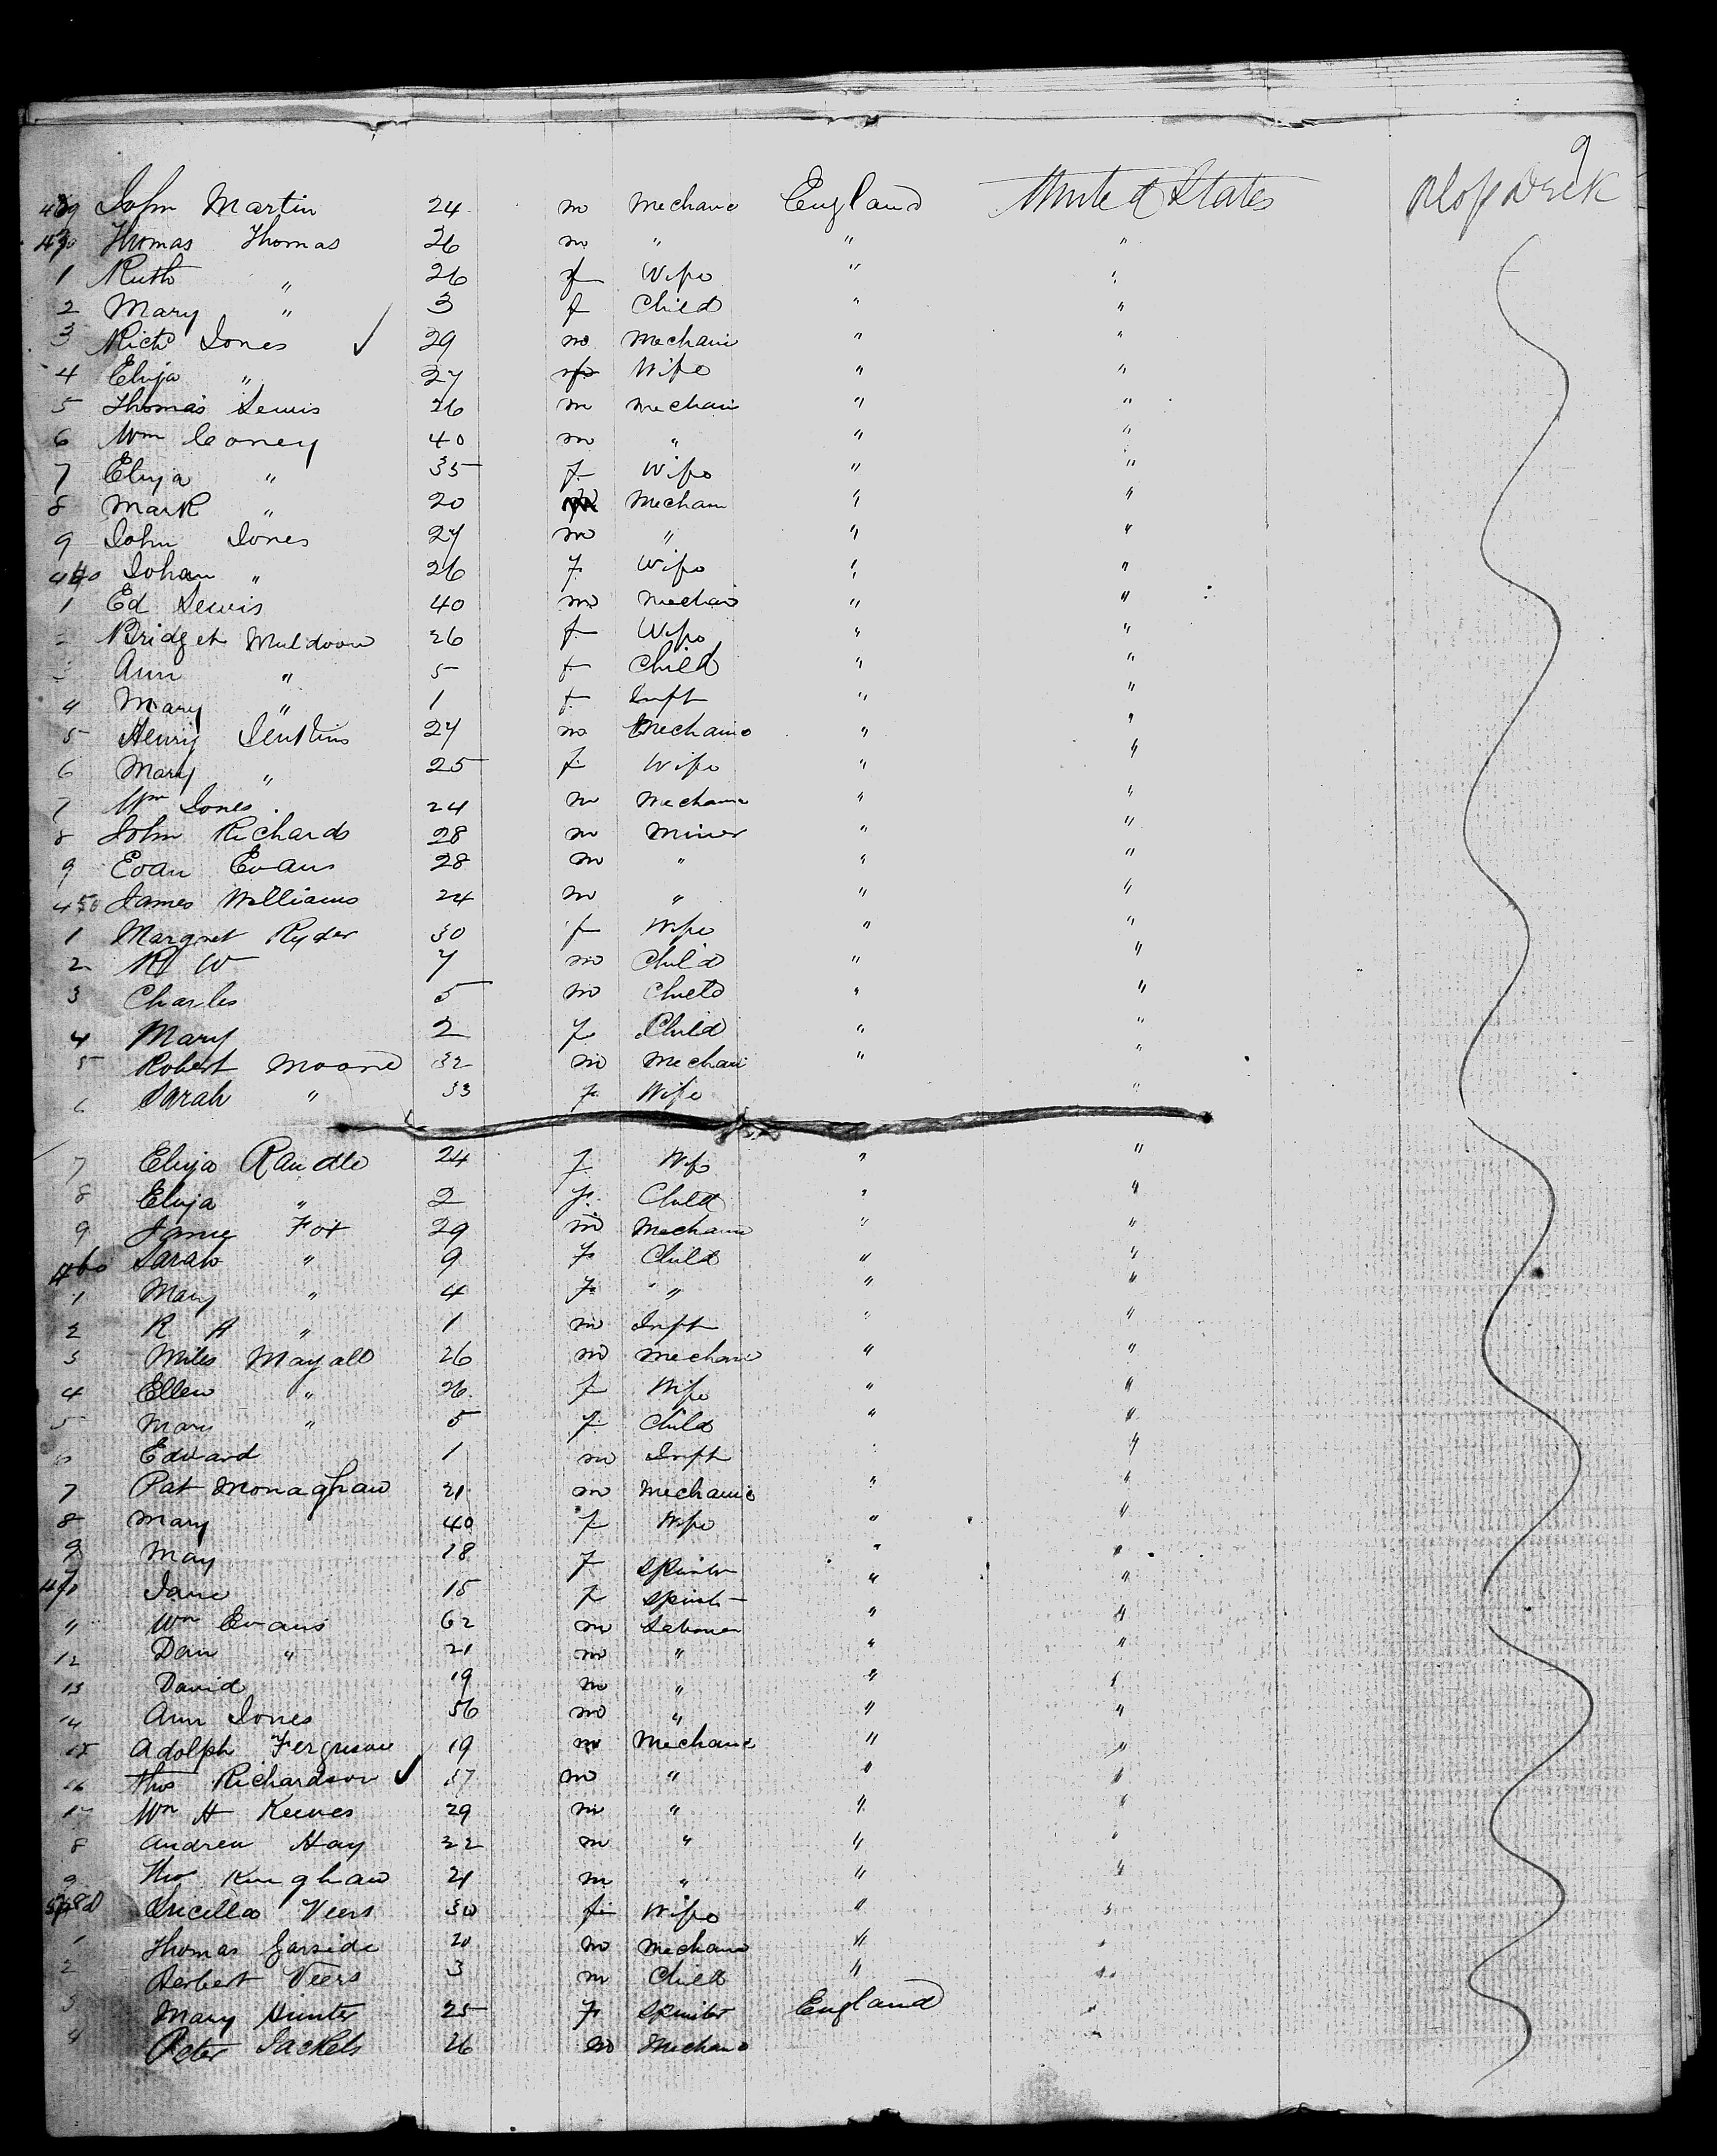 9
429 John Martin 24 m Mechanic England United States
430 Thomas Thomas 26 m " " "
1 Ruth " 26 f Wife " "
2 Mary " 3 f Child " "
3 Richd Jones ✓ 29 m Mechanic " "
4 Eliza " 27 f Wife " "
5 Thomas Lewis 26 m Mechanic " "
6 Wm Coney 40 m " " "
7 Eliza " 35 f Wife " "
8 Mark " 20 m Mechanic " "
9 John Jones 27 m " " "
440 Johan " 26 f Wife " "
1 Ed Lewis 40 m Mechanic " "
2 Bridget Muldoon 26 f Wife " "
3 Ann " 5 f Child " "
4 Mary " 1 f Inft " "
5 Henry Jenkins 27 m Mechanic " "
6 Mary " 25 f Wife " "
7 Wm Jones 24 m Mechanic " "
8 John Richards 28 m Miner " "
9 Evan Evans 28 m " " "
450 James Williams 24 m " " "
1 Margret Ryder 30 f Wife " "
2 R W 7 m Child " "
3 Charles 5 m Child " "
4 Mary 2 f Child " "
5 Robert Moore 32 m Mechanic " "
6 Sarah " 33 f Wife "
7 Eliza Randle 24 f Wife " "
8 Eliza " 2 f Child " "
9 Fox 29 m Mechanic " "
460 Sarah " 9 f Child " "
1 Mary " 4 f " " "
2 R A " 1 m Inft " "
3 Miles Mayall 26 m Mechanic " "
4 Ellen " 26 f Wife " "
5 Mary " 5 f Child " "
6 Edward 1 m Inft " "
7 Pat Monaghan 21 m Mechanic " "
8 Mary 40 f Wife " "
9 May 18 f Spinster " "
470 Jane 15 f Spinst " "
" Wm Evans 62 m Laborer " "
12 Dan " 21 m " " "
13 David 19 m " " "
14 Ann Jones 56 m " " "
15 Adolph Ferguson 19 m Mechanic " "
16 Thos Richardson ✓ 37 m " " "
17 Wm H Reeves 29 m " " "
8 Andrew Hay 22 m " " "
9 Thos Kinghan 21 m " " "
480 Veers 30 f Wife " "
1 Thomas Garside 20 m Mechanic " "
2 Herbert Veers 3 m Child " "
3 Mary Hunter 25 f Spinster England "
4 Peter Jackels 26 m Mechanic